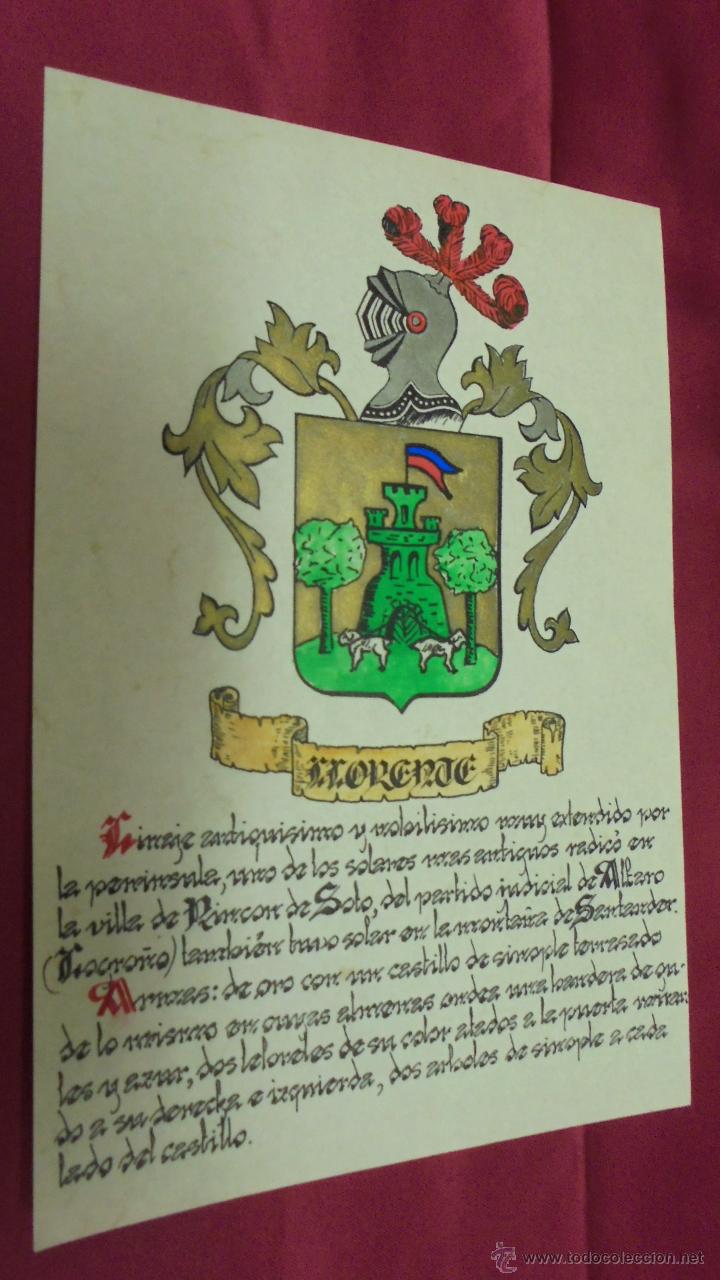 LLORENTE
Linaje antiquisimo y nobilisimo muy extendido por
la peninsula, uno de los solares mas antiguos radicó en
la villa de Rincon de Soto, del partido iudicial de Alfaro
(Logroño) también tuvo solar en la montaña de Santander.
Armas: de oro con un castillo de sinople terrasado
de lo mismo en cuyas almenas ondea una bandera de gu-
les y azur, dos lebreles de su color atados a la puerta miran-
do a su derecha e izquierda, dos arboles de sinople a cada
lado del castillo.
www.todocoleccion.net